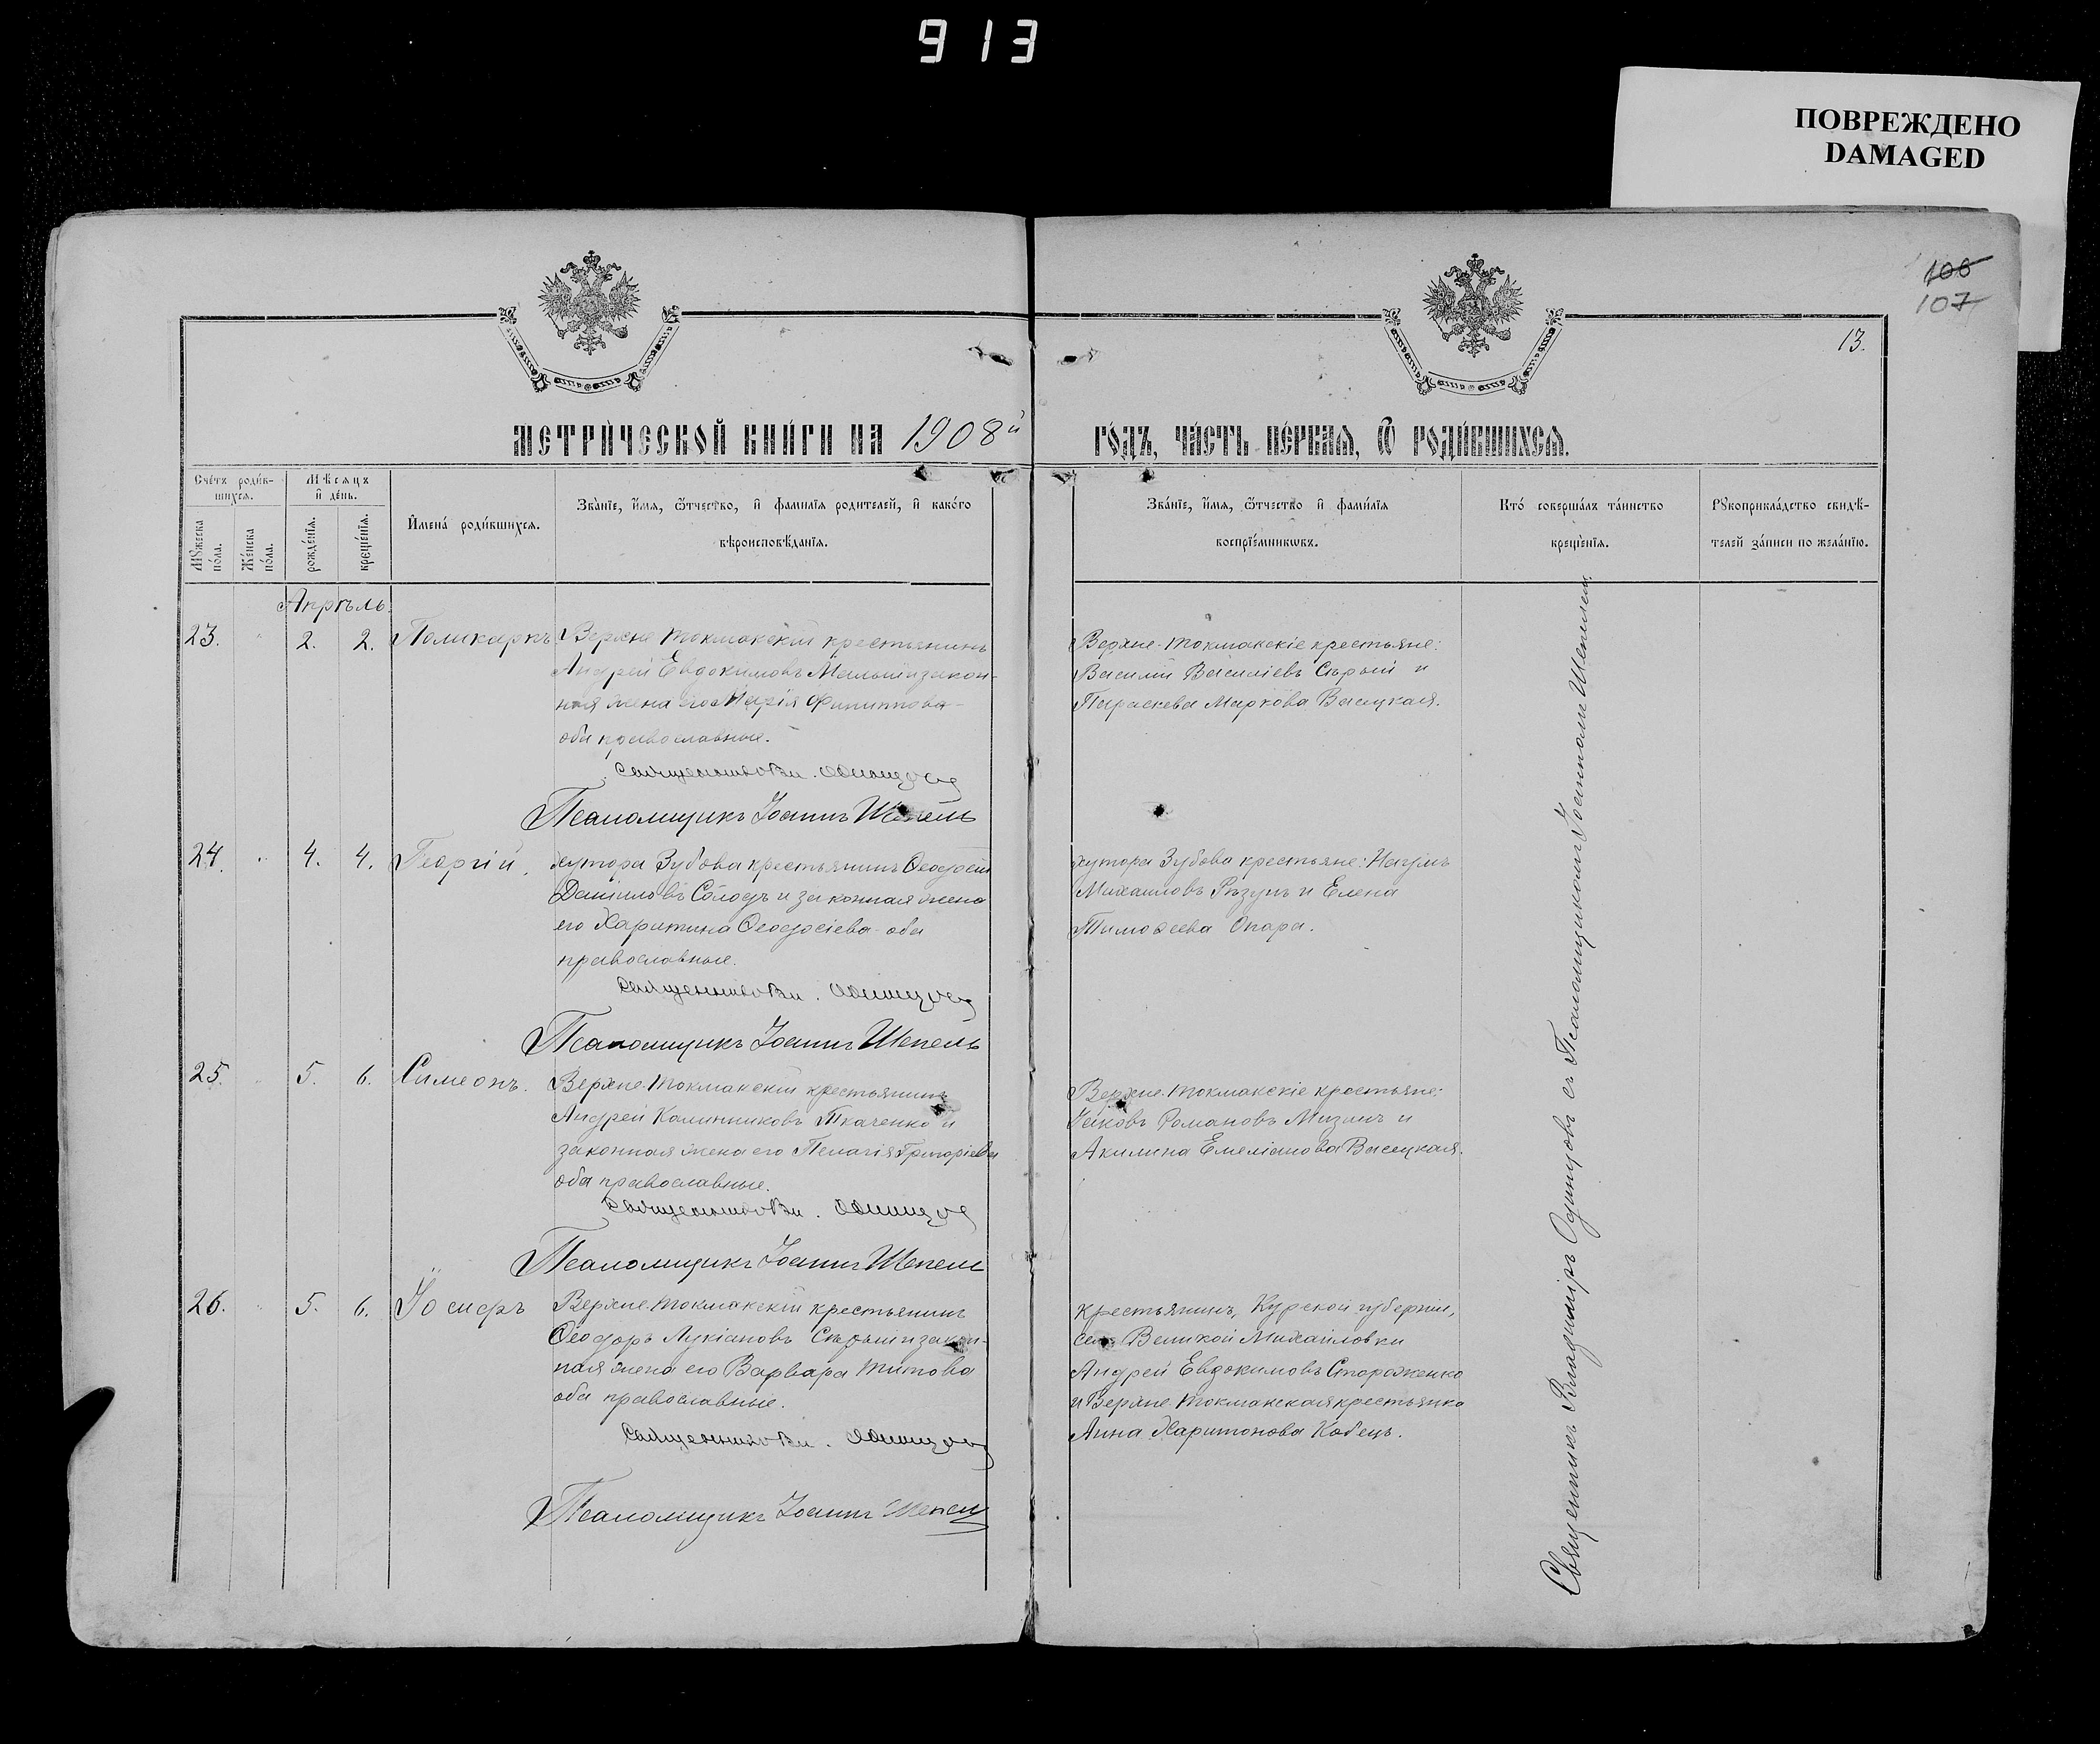 913
ПОВРЕЖДЕНО
DAMAGED
106
107
13.
МЕТРИЧЕСКОЙ КНИГИ НА 1908й
ГОДЪ, ЧАСТЬ ПЕРВАЯ, Ѡ РОДИВШИХСЯ.
Счетъ родив-
шихся.
Мѣсяцъ
и день.
Мужеска
пола.
Женска
пола.
рожденія.
крещенія.
Имена родившихся.
Званіе, имя, ѿчество, и фамилія родителей, и какого
вѣроисповѣданія.
Званіе, имя, ѿчество и фамилія
воспріемниковъ.
Кто совершалъ таинство
крещенія.
Рукоприкладство свидѣ-
телей записи по желанію.
Апрѣль.
23. 2. 2. Поликарпъ.
Верхне-Токмакскій крестьянинъ
Андрей Евдокимовъ Малый и закон-
ная жена его Марія Филиппова
оба православные.
Священникъ Вл. Одинцовъ
Псаломщикъ Іоаннъ Шепель
Верхне-Токмакскіе крестьяне:
Василій Василіевъ Сѣрый и
Параскева Маркова Васецкая.
24. 4. 4. Георгій.
хутора Зубова крестьянинъ Ѳеодосій
Даніиловъ Солодъ и законная жена
его Харитина Ѳеодосіева оба
православные.
Священникъ Вл. Одинцовъ
Псаломщикъ Іоаннъ Шепель
хутора Зубова крестьяне: Наумъ
Михаиловъ Рѣзунъ и Елена
Тимоѳеева Опара.
25. 5. 6. Симеонъ.
Верхне-Токмакскій крестьянинъ
Андрей Калинниковъ Ткаченко и
законная жена его Пелагія Григоріева
оба православные.
Священникъ Вл. Одинцовъ
Псаломщикъ Іоаннъ Шепель
Верхне-Токмакскіе крестьяне:
Іаковъ Романовъ Мизинъ и
Акилина Емеліанова Васецкая.
26. 5. 6. Іосифъ
Верхне-Токмакскій крестьянинъ
Ѳеодоръ Лукіановъ Сѣрый и закон-
ная жена его Варвара Титова
оба православные.
Священникъ Вл. Одинцовъ
Псаломщикъ Іоаннъ Шепель
крестьянинъ, Курской губерніи,
села Великой Михайловки
Андрей Евдокимовъ Стороженко
и Верхне-Токмакская крестьянка
Анна Харитонова Кобецъ.
Священникъ Владиміръ Одинцовъ съ Псаломщикомъ Іоанномъ Шепелемъ.